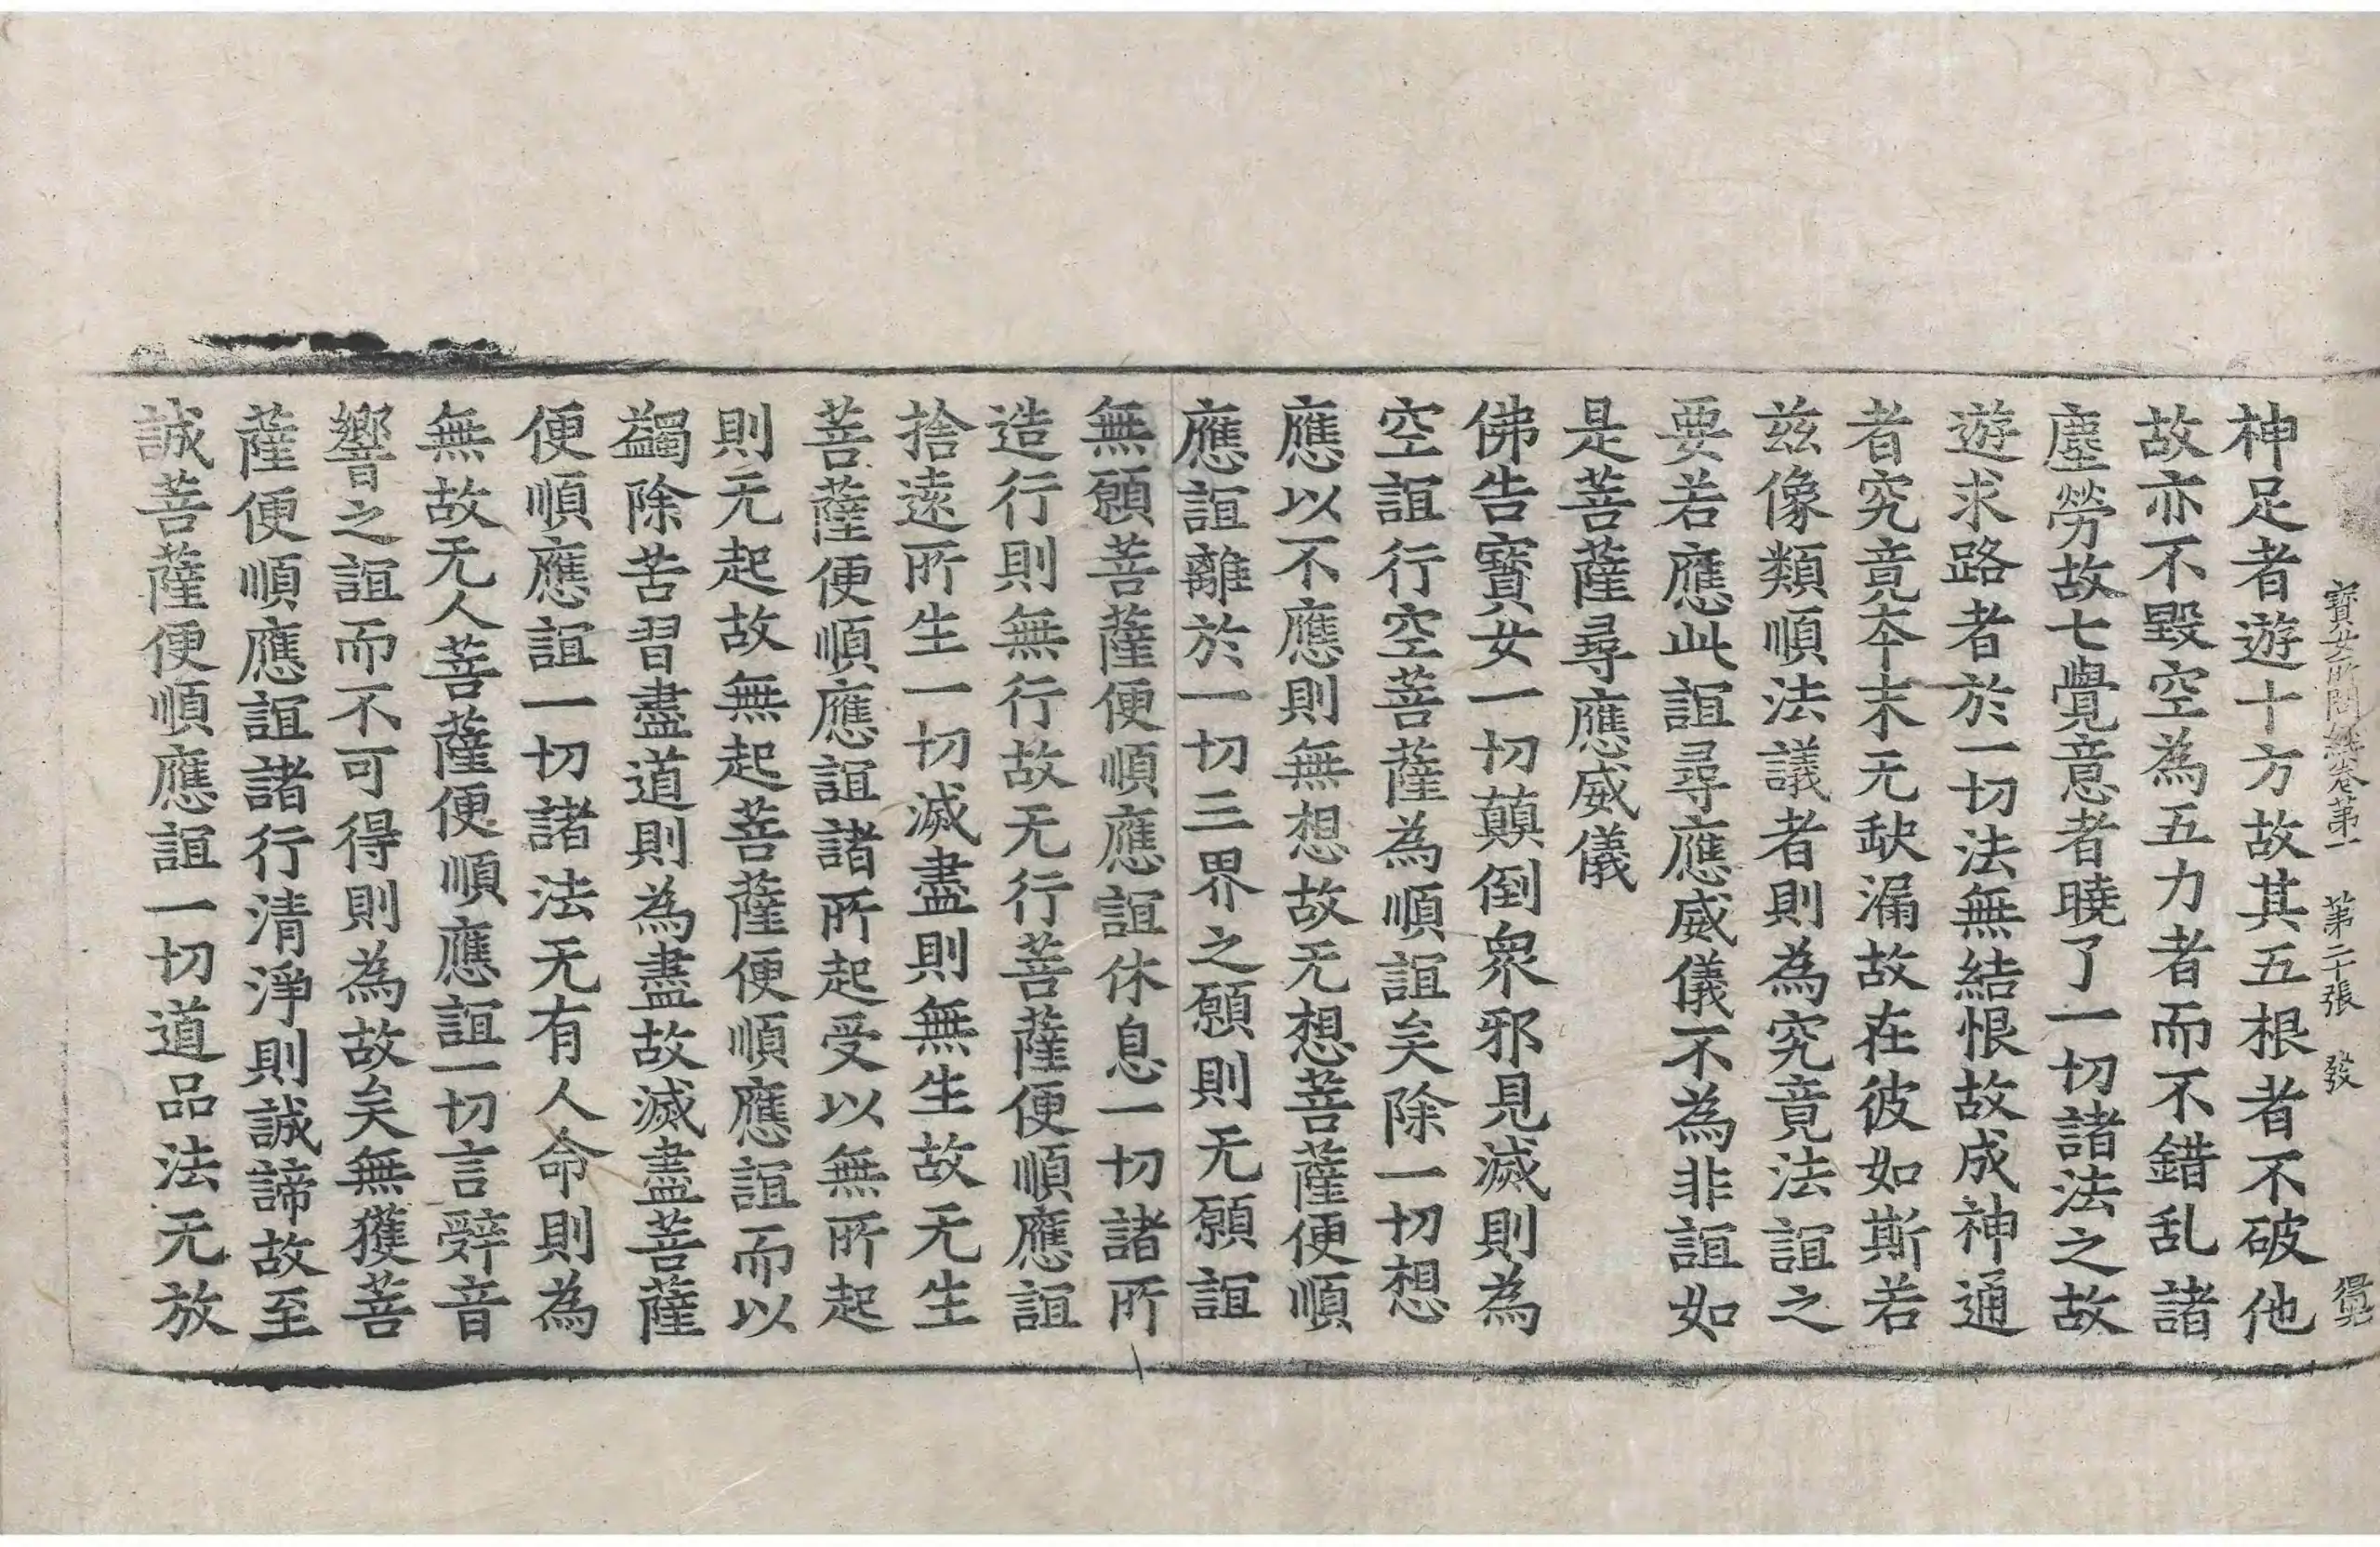 寶女所問經卷第一　第二十張　發
神足者遊十方故其五根者不破他
故亦不毀空為五力者而不錯乱諸
塵勞故七覺意者曉了一切諸法之故
遊求路者於一切法無結恨故成神通
者究竟夲末无缺漏故在彼如斯若
兹像類順法議者則為究竟法誼之
要若應此誼尋應威儀不為非誼如
是菩薩尋應威儀
佛告寶女一切顛倒衆邪見滅則為
空誼行空菩薩為順誼矣除一切想
應以不應則無想故无想菩薩便順
應誼離於一切三界之願則无願誼
無願菩薩便順應誼休息一切諸所
造行則無行故无行菩薩便順應誼
捨遠所生一切滅盡則無生故无生
菩薩便順應誼諸所起受以無所起
則无起故無起菩薩便順應誼而以
蠲除苦習盡道則為盡故滅盡菩薩
便順應誼一切諸法无有人命則為
無故无人菩薩便順應誼一切言辭音
響之誼而不可得則為故矣無獲菩
薩便順應誼諸行清淨則誠諦故至
誠菩薩便順應誼一切道品法无放